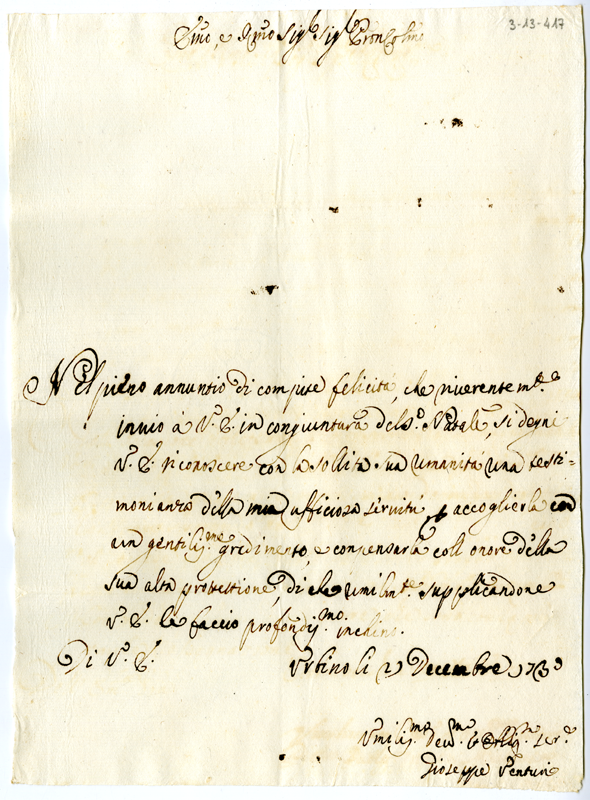 3-13-417
Emo, e Rmo Sigr Sigr Pron Colmo
Nel pieno annuntio di compite felicitá, che riverentemte.
invio á V. E. in congiuntura del So. Natale, si degni
V. E. riconoscere con la solita sua umanitá una testi=
monianza della mia ufficiosa servitú, accoglierla con
un gentilisme. gredimento, e compensarla coll onore della
sua alta protestione, di che umilmte. supplicandone
V. E. le faccio profondismo. inchino.
Di V. E. Urbino li Decembre 173
Umilismo devmo. ser.
Gioseppe Venturi